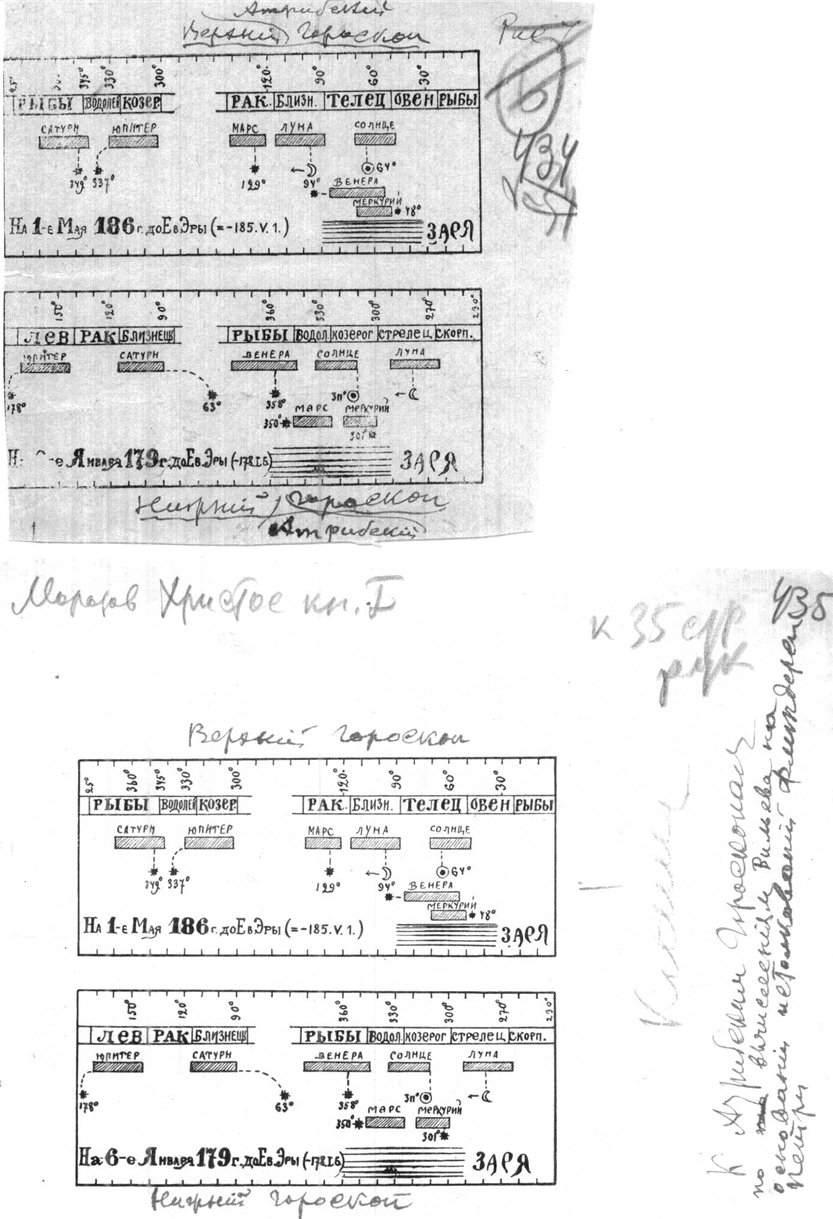 Атрибский
Верхний Гороскоп
434
345° 330° 300° 120° 90° 60° 30°
РЫБЫ ВОДОЛЕЙ КОЗЕР РАК. БЛИЗН. ТЕЛЕЦ ОВЕН РЫБЫ
САТУРН ЮПИТЕР МАРС ЛУНА СОЛНЦЕ
349° 337° 129° 94° 64°
ВЕНЕРА
МЕРКУРИЙ
48°
НА 1-е МАЯ 186 г. до Ев. Эры (=-185.V.1.) ЗАРЯ
150° 120° 90° 360° 330° 300° 270° 230°
ЛЕВ РАК БЛИЗНЕЦЫ РЫБЫ ВОДОЛ. КОЗЕРОГ СТРЕЛЕЦ СКОРП.
ЮПИТЕР САТУРН ВЕНЕРА СОЛНЦЕ ЛУНА
178° 63° 358° 311°
МАРС МЕРКУРИЙ
350° 301°
-е Января 179 г. до Ев. Эры (-178.I.6) ЗАРЯ
Нижний Гороскоп
Атрибский
Морозов Христос кн. I
435
к 35 стр
рук
Верхний гороскоп
360° 345° 330° 300° 120° 90° 60° 30°
РЫБЫ ВОДОЛЕЙ КОЗЕР РАК. БЛИЗН. ТЕЛЕЦ ОВЕН РЫБЫ
САТУРН ЮПИТЕР МАРС ЛУНА СОЛНЦЕ
349° 337° 129° 94° 64°
ВЕНЕРА
МЕРКУРИЙ
48°
НА 1-е МАЯ 186 г. до Ев. Эры (=-185.V.1.) ЗАРЯ
150° 120° 90° 360° 330° 300° 270° 230°
ЛЕВ РАК БЛИЗНЕЦЫ РЫБЫ ВОДОЛ. КОЗЕРОГ СТРЕЛЕЦ СКОРП.
ЮПИТЕР САТУРН ВЕНЕРА СОЛНЦЕ ЛУНА
178° 63° 358° 311°
МАРС МЕРКУРИЙ
350° 301°
На 6-е Января 179 г. до Ев. Эры (-178.I.6) ЗАРЯ
Нижний гороскоп
К Атрибским Гороскопам
по вычислениям Вильева на
основании истолкований Флиндерса
Петри